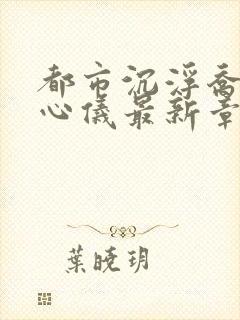 都市沉浮喬
心儀最新章
葉曉玥